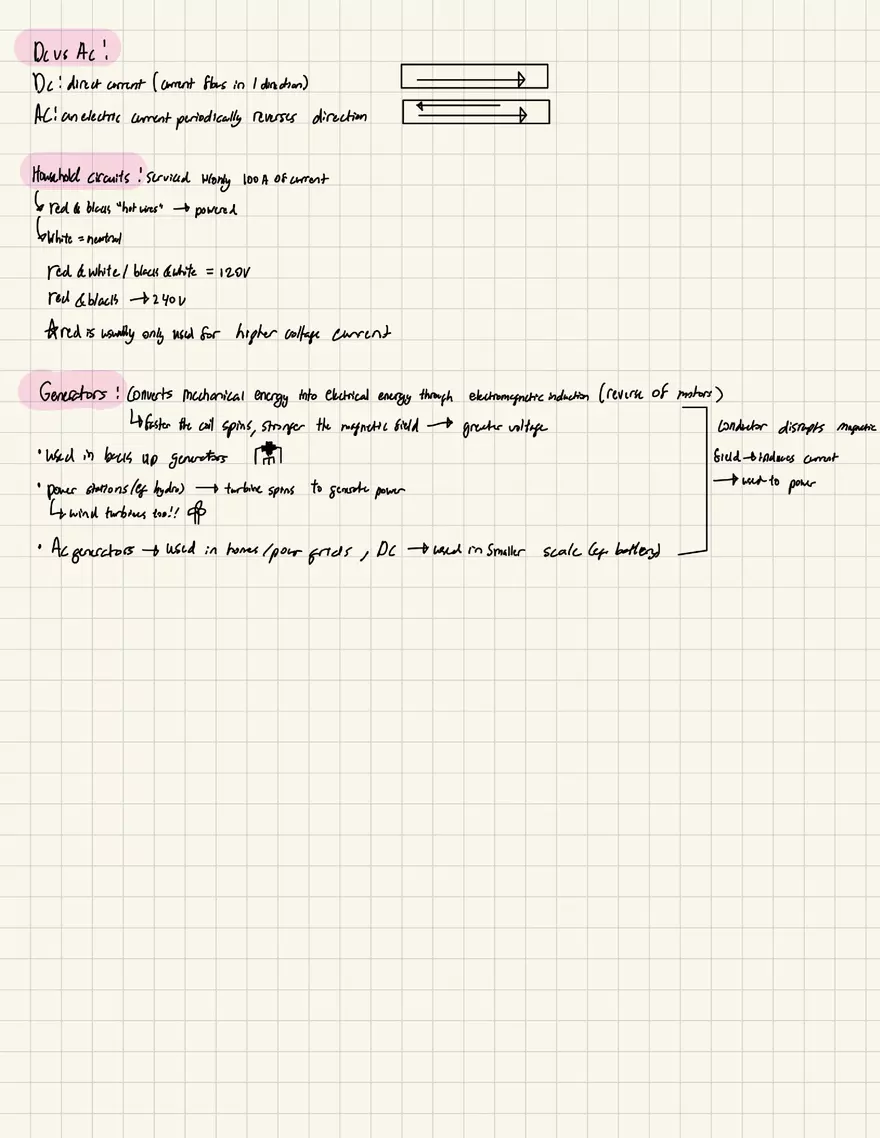 Dc vs Ac:
Dc: direct current (current flows in 1 direction)
AC: an electric current periodically reverses direction
Household circuits: Serviced w/only 100 A of current
red & black "hot wires" → powered
White = neutral
red & white / black & white = 120V
red & black → 240V
☆ red is usually only used for higher voltage current
Generators: Converts mechanical energy into electrical energy through electromagnetic induction (reverse of motors)
↳ faster the coil spins, stronger the magnetic field → greater voltage
• used in back up generators
• power stations (eg hydro) → turbine spins to generate power
↳ wind turbines too!!
• Ac generators → used in homes/power grids, DC → used in smaller scale (eg. battery)
Conductor disrupts magnetic
field → induces current
→ used to power